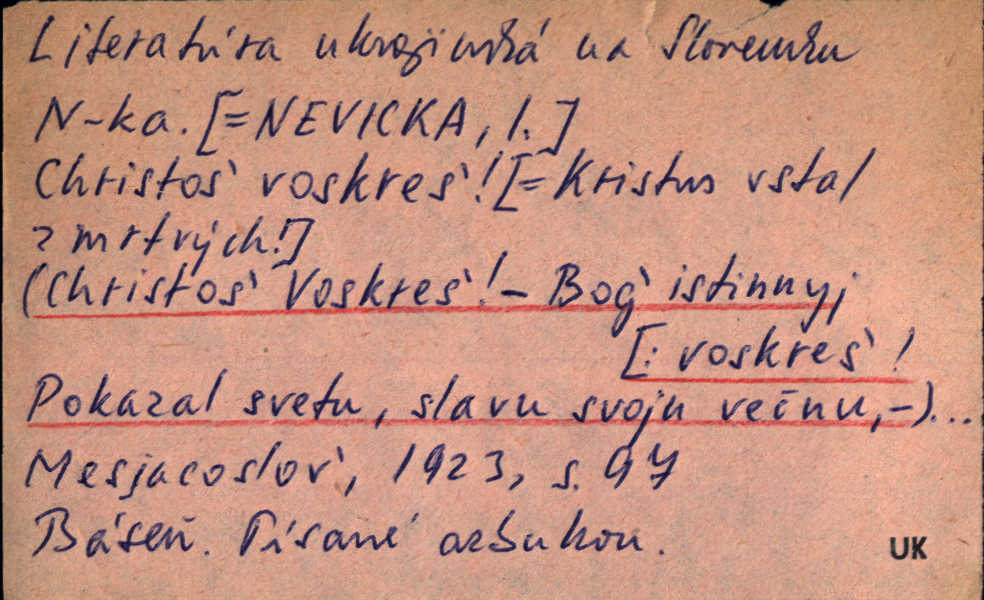 Literatúra ukrajinská na Slovensku
N-ka. [=NEVICKA, I.]
Christos' voskres'! [=Kristus vstal
z mŕtvych!]
(Christos' Voskres'! - Bog' istinnyj
[: voskres'!
Pokazal svetu, slavu svoju večnu,-)...
Mesjacoslov', 1923, s. 97
Báseň. Písané azbukou.
UK